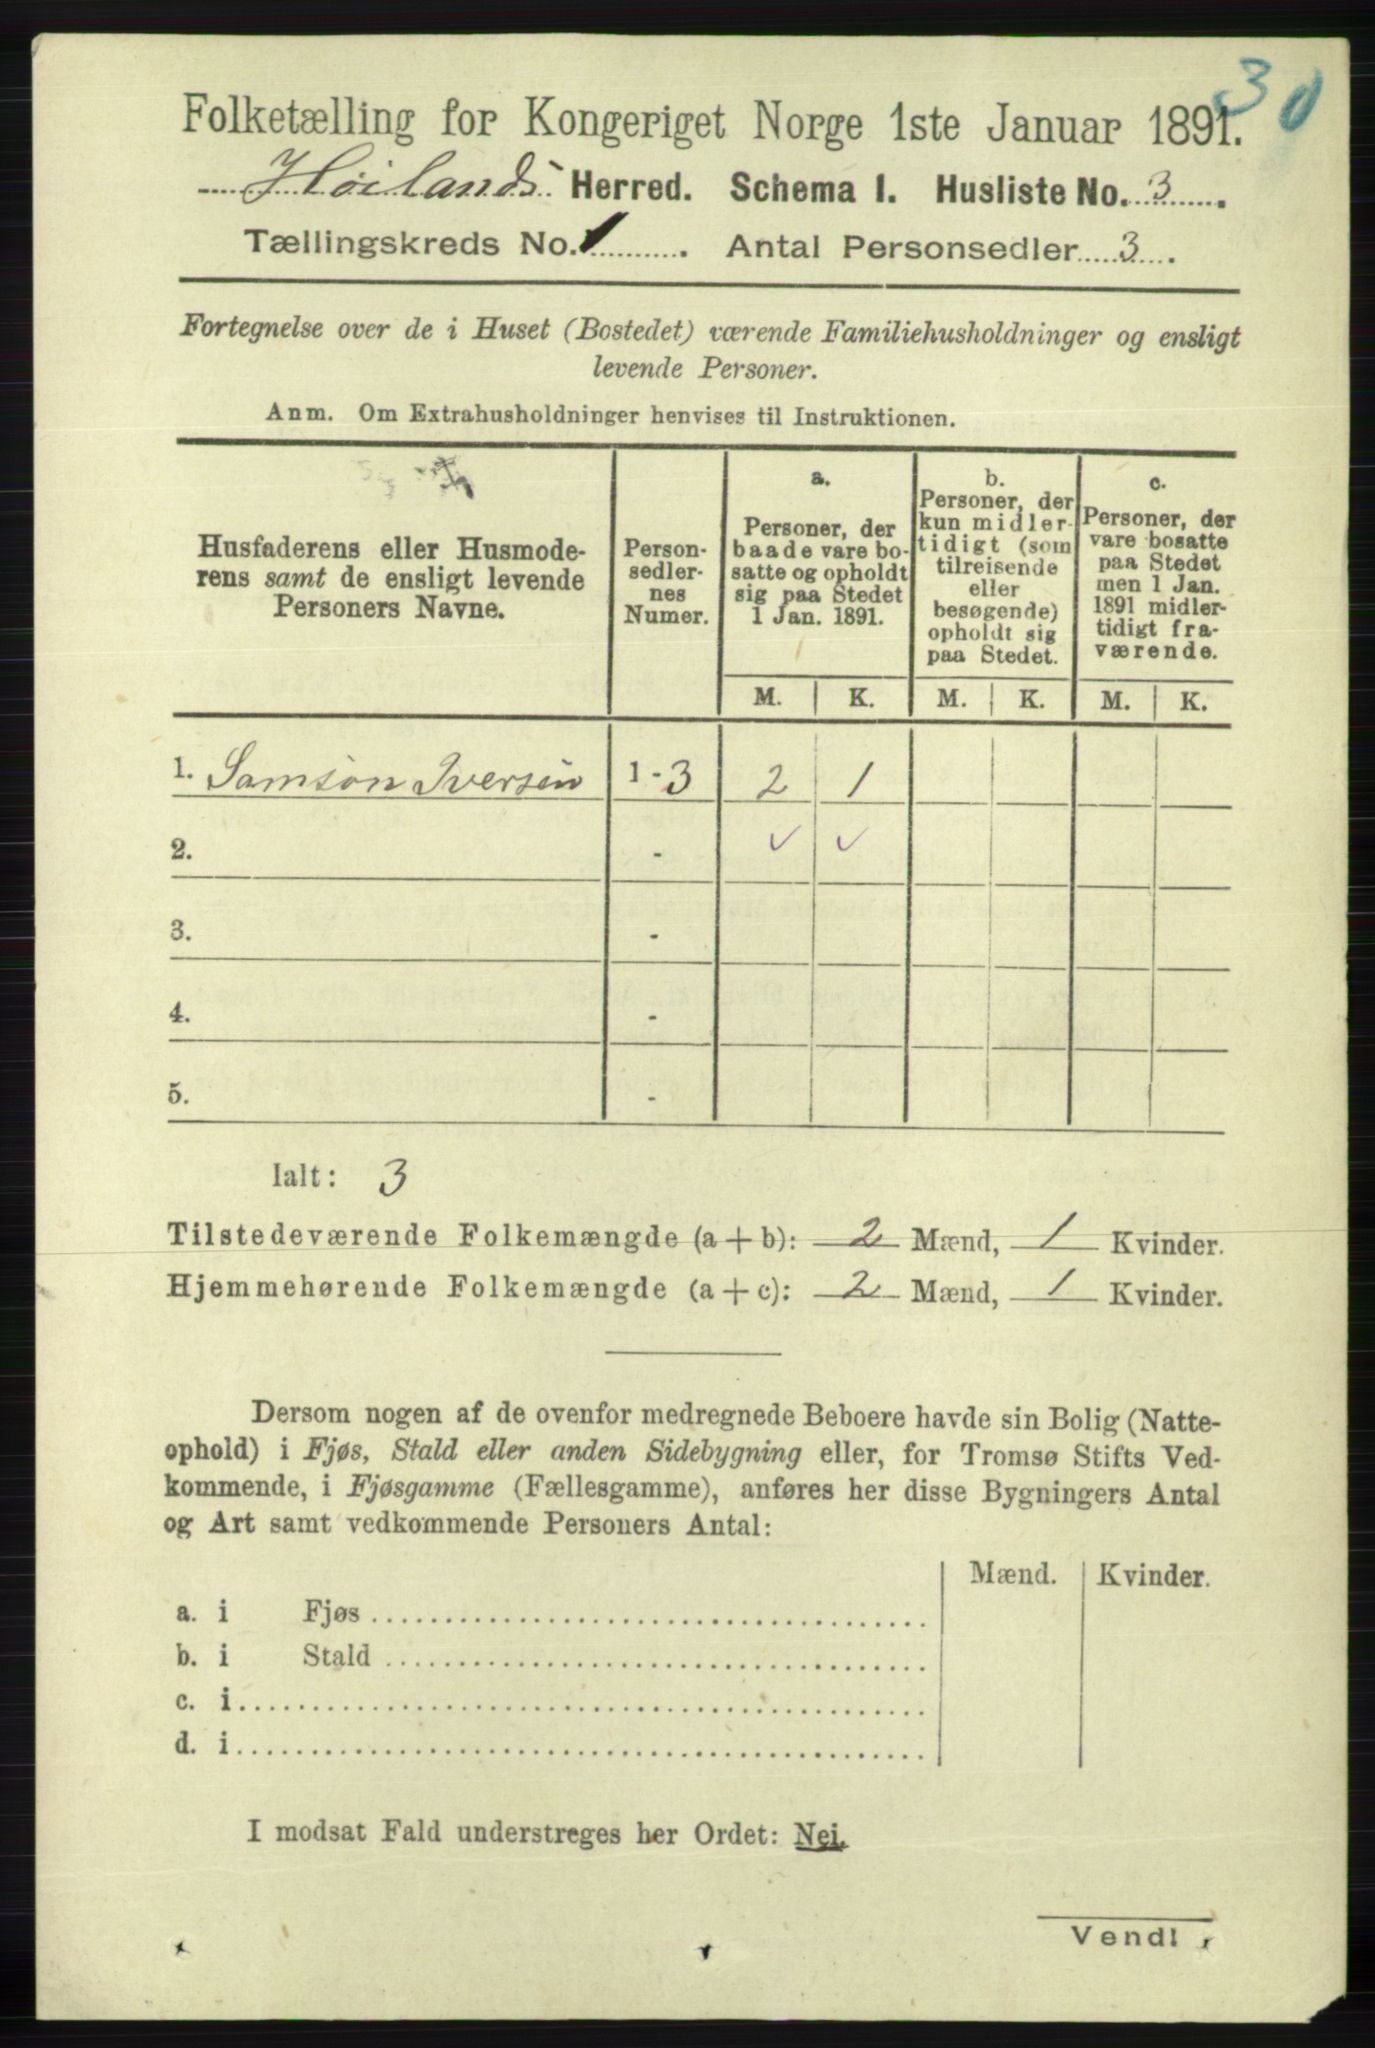 30
Folketælling for Kongeriget Norge 1ste Januar 1891.
Høilands Herred. Schema I. Husliste No. 3.
Tællingskreds No. 1. Antal Personsedler 3.
Fortegnelse over de i Huset (Bostedet) værende Familiehusholdninger og ensligt
levende Personer.
Anm. Om Extrahusholdninger henvises til Instruktionen.
Husfaderens eller Husmode-
rens samt de ensligt levende
Personers Navne.
Person-
sedler-
nes
Numer.
a.
Personer, der
baade vare bo-
satte og opholdt
sig paa Stedet
1 Jan. 1891.
b.
Personer, der
kun midler-
tidigt (som
tilreisende
eller
besøgende)
opholdt sig
paa Stedet.
c.
Personer, der
vare bosatte
paa Stedet
men 1 Jan.
1891 midler-
tidigt fra-
værende.
M. K. M. K. M. K.
1. Samson Iversen 1-3 2 1
2. - ✓ ✓
3. -
4. -
5. -
Ialt: 3
Tilstedeværende Folkemængde (a+b): 2 Mænd, 1 Kvinder.
Hjemmehørende Folkemængde (a+c): 2 Mænd, 1 Kvinder.
Dersom nogen af de ovenfor medregnede Beboere havde sin Bolig (Natte-
ophold) i Fjøs, Stald eller anden Sidebygning eller, for Tromsø Stifts Ved-
kommende, i Fjøsgamme (Fællesgamme), anføres her disse Bygningers Antal
og Art samt vedkommende Personers Antal:
Mænd. Kvinder.
a. i Fjøs
b. i Stald
c. i
d. i
I modsat Fald understreges her Ordet: Nei.
Vend!